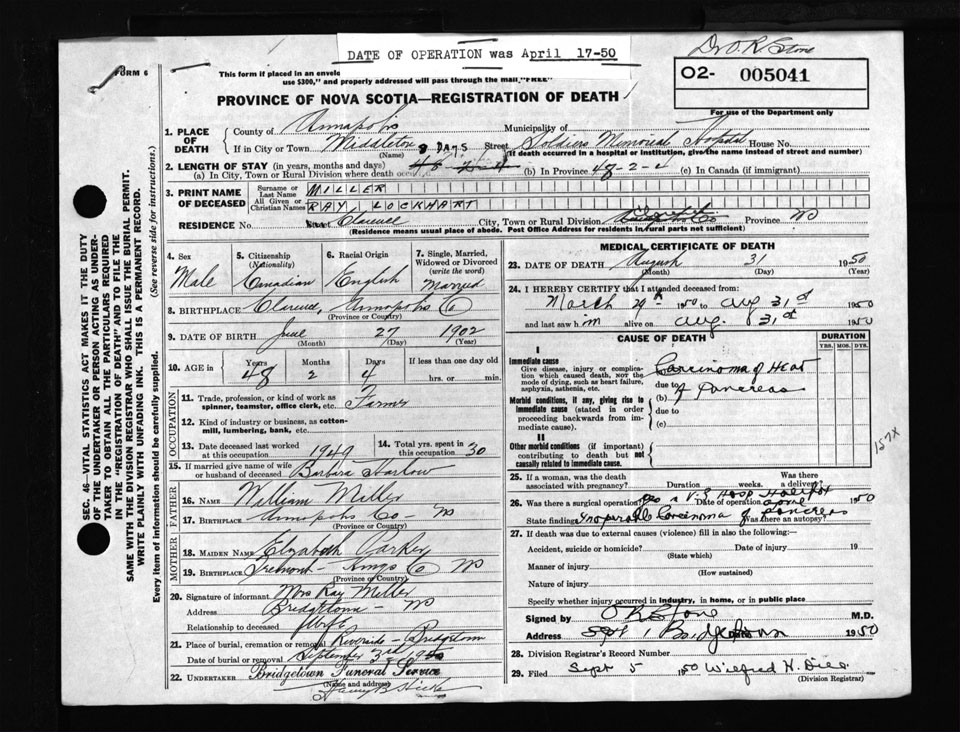 DATE OF OPERATION was April 17-50
Dr O. R. Stone
FORM 6
This form if placed in an envelo
use $300," and properly addressed will pass through the mail "FREE"
O2- 005041
For use of the Department only
PROVINCE OF NOVA SCOTIA—REGISTRATION OF DEATH
1. PLACE OF DEATH County of Annapolis Municipality of
If in City or Town Middleton Street Soldiers Memorial Hospital House No.
(Name) 8 DAYS (If death occurred in a hospital or institution, give the name instead of street and number)
2. LENGTH OF STAY (in years, months and days)
(a) In City, Town or Rural Division where death occu (b) In Province 48-2-4 (c) In Canada (if immigrant)
3. PRINT NAME OF DECEASED
Surname or Last Name MILLER
All Given or Christian Names RAY, LOCKHART
RESIDENCE No. Street Clarence City, Town or Rural Division Province NS
(Residence means usual place of abode. Post Office Address for residents in rural parts not sufficient)
4. Sex Male
5. Citizenship (Nationality) Canadian
6. Racial Origin English
7. Single, Married, Widowed or Divorced (write the word) Married
8. BIRTHPLACE Clarence, Annapolis Co
(Province or Country)
9. DATE OF BIRTH June 27 1902
(Month) (Day) (Year)
10. AGE in Years 48 Months 2 Days 4 If less than one day old
hrs. or min.
OCCUPATION
11. Trade, profession, or kind of work as spinner, teamster, office clerk, etc. Farmer
12. Kind of industry or business, as cotton-mill, lumbering, bank, etc.
13. Date deceased last worked at this occupation 1949
14. Total yrs. spent in this occupation 30
15. If married give name of wife or husband of deceased Barbara Harlow
FATHER
16. Name William Miller
17. Birthplace Annapolis Co - NS
(Province or Country)
MOTHER
18. MAIDEN NAME Elizabeth Parker
19. BIRTHPLACE Tremont - Kings Co NS
(Province or Country)
20. Signature of informant Mrs Ray Miller
Address Bridgetown - NS
Relationship to deceased Wife
21. Place of burial, cremation or removal Riverside - Bridgetown
Date of burial or removal September 3rd 1950
22. UNDERTAKER Bridgetown Funeral Service
(Name and address) Harry B Hicks
MEDICAL CERTIFICATE OF DEATH
23. DATE OF DEATH August 31 1950
(Month) (Day) (Year)
24. I HEREBY CERTIFY that I attended deceased from:
March 29th 1950 to Aug 31st 1950
and last saw him alive on Aug. 31st 1950
CAUSE OF DEATH
DURATION
YRS. MOS. DYS.
I
Immediate cause
Give disease, injury or complication which caused death, not the mode of dying, such as heart failure, asphyxia, asthenia, etc.
Carcinoma of Head
due to
(b) of Pancreas
Morbid conditions, if any, giving rise to immediate cause (stated in order proceeding backwards from immediate cause).
due to
(c)
II
Other morbid conditions (if important) contributing to death but not causally related to immediate cause.
157X
25. If a woman, was the death associated with pregnancy? Duration weeks. Was there a delivery?
26. Was there a surgical operation? Yes V.G Hosp Halifax Date of operation April 1950
State findings Inoperable Carcinoma of Pancreas Was there an autopsy?
27. If death was due to external causes (violence) fill in also the following:—
Accident, suicide or homicide? Date of injury 19
(State which)
Manner of injury
(How sustained)
Nature of injury
Specify whether injury occurred in industry, in home, or in public place
Signed by O R Stone M.D.
Address Bridgetown 1950
28. Division Registrar's Record Number
29. Filed Sept 5 1950 Wilfred H. Dill
(Division Registrar)
SEC. 46—VITAL STATISTICS ACT MAKES IT THE DUTY
OF THE UNDERTAKER OR PERSON ACTING AS UNDER-
TAKER TO OBTAIN ALL THE PARTICULARS REQUIRED
IN THE "REGISTRATION OF DEATH" AND TO FILE THE
SAME WITH THE DIVISION REGISTRAR WHO SHALL ISSUE THE BURIAL PERMIT.
WRITE PLAINLY WITH UNFADING INK. THIS IS A PERMANENT RECORD.
Every item of information should be carefully supplied. (See reverse side for instructions.)